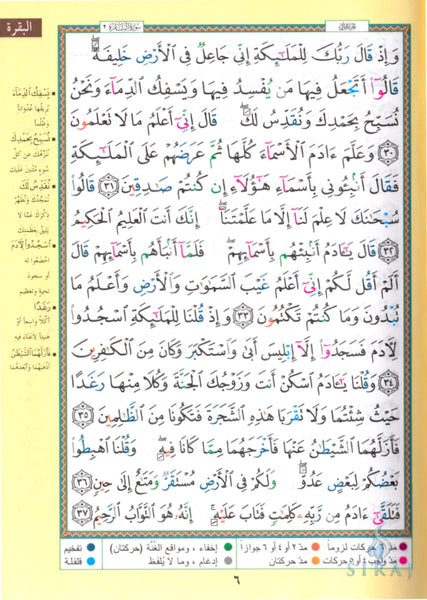 البقرة
سورة البقرة ٢
الجزء الأول
وَإِذْ قَالَ رَبُّكَ لِلْمَلَٰٓئِكَةِ إِنِّى جَاعِلٌ فِى ٱلْأَرْضِ خَلِيفَةً ۖ
قَالُوٓا۟ أَتَجْعَلُ فِيهَا مَن يُفْسِدُ فِيهَا وَيَسْفِكُ ٱلدِّمَآءَ وَنَحْنُ
نُسَبِّحُ بِحَمْدِكَ وَنُقَدِّسُ لَكَ ۖ قَالَ إِنِّىٓ أَعْلَمُ مَا لَا تَعْلَمُونَ
٣٠ وَعَلَّمَ ءَادَمَ ٱلْأَسْمَآءَ كُلَّهَا ثُمَّ عَرَضَهُمْ عَلَى ٱلْمَلَٰٓئِكَةِ
فَقَالَ أَنۢبِـُٔونِى بِأَسْمَآءِ هَٰٓؤُلَآءِ إِن كُنتُمْ صَٰدِقِينَ ٣١ قَالُوا۟
سُبْحَٰنَكَ لَا عِلْمَ لَنَآ إِلَّا مَا عَلَّمْتَنَآ ۖ إِنَّكَ أَنتَ ٱلْعَلِيمُ ٱلْحَكِيمُ
٣٢ قَالَ يَٰٓـَٔادَمُ أَنۢبِئْهُم بِأَسْمَآئِهِمْ ۖ فَلَمَّآ أَنۢبَأَهُم بِأَسْمَآئِهِمْ قَالَ
أَلَمْ أَقُل لَّكُمْ إِنِّىٓ أَعْلَمُ غَيْبَ ٱلسَّمَٰوَٰتِ وَٱلْأَرْضِ وَأَعْلَمُ مَا
تُبْدُونَ وَمَا كُنتُمْ تَكْتُمُونَ ٣٣ وَإِذْ قُلْنَا لِلْمَلَٰٓئِكَةِ ٱسْجُدُوا۟
لِـَٔادَمَ فَسَجَدُوٓا۟ إِلَّآ إِبْلِيسَ أَبَىٰ وَٱسْتَكْبَرَ وَكَانَ مِنَ ٱلْكَٰفِرِينَ
٣٤ وَقُلْنَا يَٰٓـَٔادَمُ ٱسْكُنْ أَنتَ وَزَوْجُكَ ٱلْجَنَّةَ وَكُلَا مِنْهَا رَغَدًا
حَيْثُ شِئْتُمَا وَلَا تَقْرَبَا هَٰذِهِ ٱلشَّجَرَةَ فَتَكُونَا مِنَ ٱلظَّٰلِمِينَ ٣٥
فَأَزَلَّهُمَا ٱلشَّيْطَٰنُ عَنْهَا فَأَخْرَجَهُمَا مِمَّا كَانَا فِيهِ ۖ وَقُلْنَا ٱهْبِطُوا۟
بَعْضُكُمْ لِبَعْضٍ عَدُوٌّ ۖ وَلَكُمْ فِى ٱلْأَرْضِ مُسْتَقَرٌّ وَمَتَٰعٌ إِلَىٰ حِينٍ ٣٦
فَتَلَقَّىٰٓ ءَادَمُ مِن رَّبِّهِۦ كَلِمَٰتٍ فَتَابَ عَلَيْهِ ۚ إِنَّهُۥ هُوَ ٱلتَّوَّابُ ٱلرَّحِيمُ ٣٧
يَسْفِكُ الدِّمَاءَ
يُريقُها عُدواناً
وظُلماً
نُسَبِّحُ بِحَمْدِكَ
نُنَزِّهُكَ عن كلِّ
سُوءٍ مُثنين عليك
نُقَدِّسُ لَكَ
نُمَجِّدُكَ ونُطَهِّرُ
ذِكرَكَ عمّا لا
يليقُ بعظمتك
اسْجُدُوا لِآدَمَ
اخضَعُوا له
أو سجودَ
تحيةٍ وتعظيم
رَغَدًا
أكلاً واسعاً أو
هنيئاً لا عناءَ فيه
فَأَزَلَّهُمَا الشَّيْطَانُ
أذهبَهُما وأبعدَهُما
مدّ ٦ حركات لزوماً
مدّ ٢ أو ٤ أو ٦ جوازاً
إخفاء ، ومواقع الغُنّة (حركتان)
تفخيم
مدّ واجب ٤ أو ٥ حركات
مدّ حركتان
إدغام ، وما لا يُلفظ
قلقلة
٦
SIRAJ